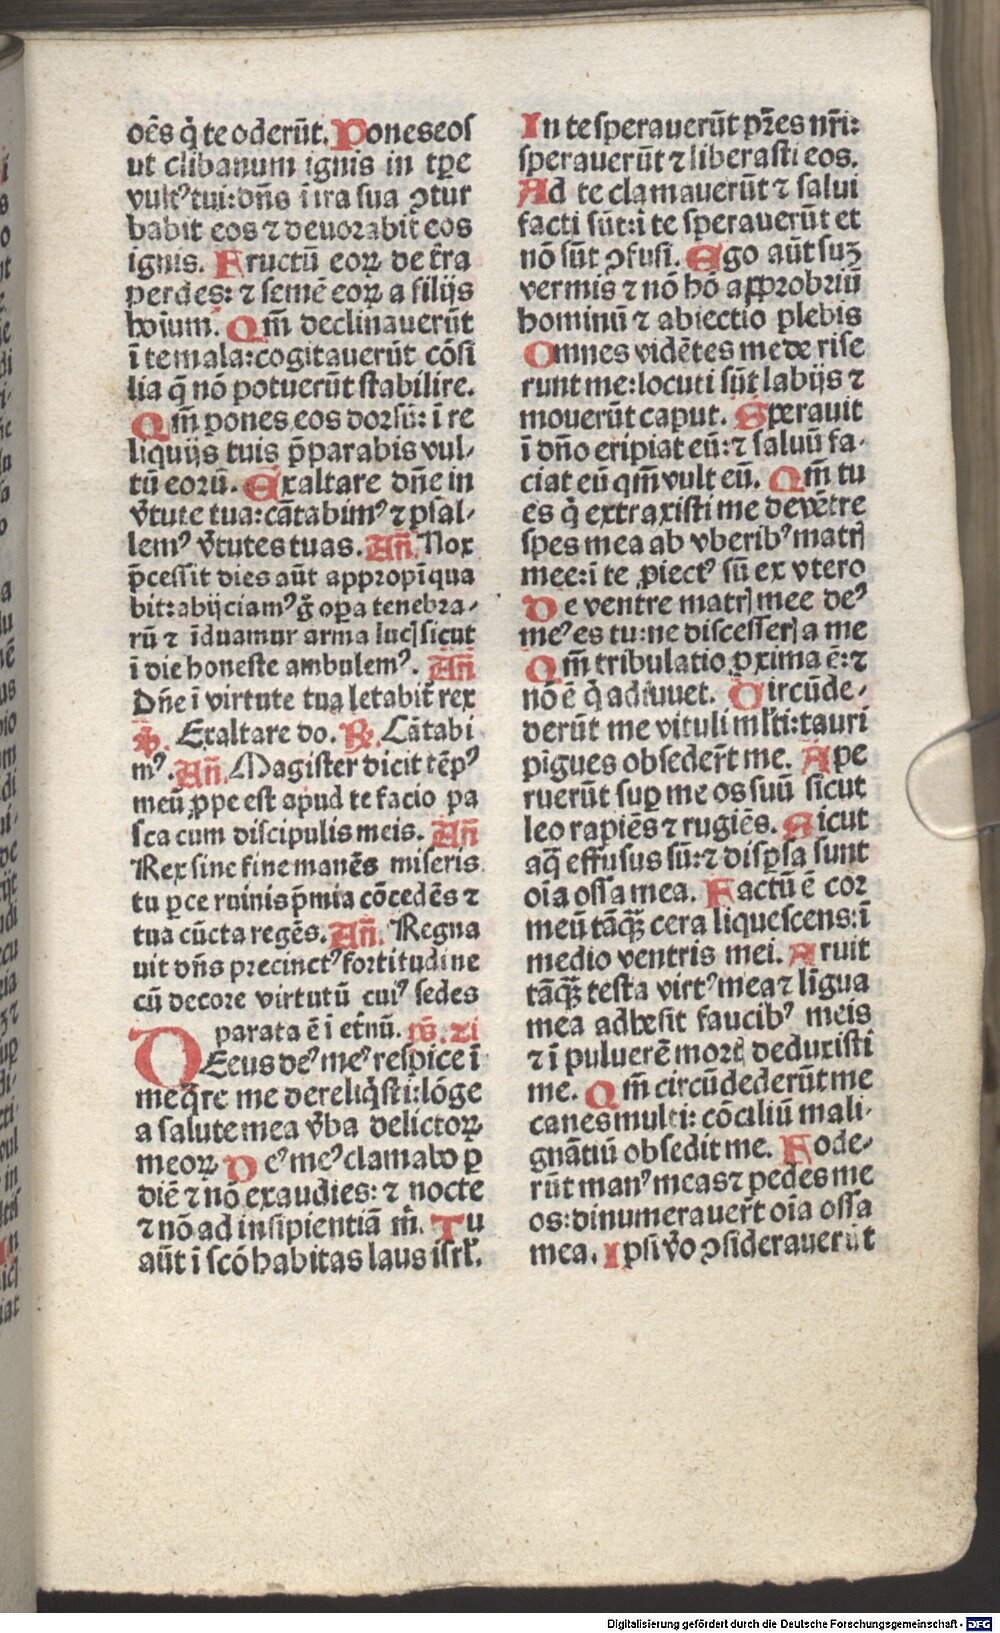 oēs q̇ te oderūt. Pones eos
ut clibanum ignis in tꝑe
vultꝰ tui: dn̄s ī ira sua ꝯtur
babit eos ⁊ deuorabit eos
ignis. Fructū eoꝝ de t̄ra
perdes: ⁊ semē eoꝝ a filijs
hoīum. Qm̄ declinauerūt
ī te mala: cogitauerūt cōsi
lia q̄ nō potuerūt stabilire.
Qm̄ pones eos dorsū: ī re
liquijs tuis p̄parabis vul⸗
tū eorū. Exaltare dn̄e in
v̄tute tua: cātabimꝰ ⁊ psal⸗
lemꝰ v̄tutes tuas. Añ. Nox
p̄cessit dies aūt appropīqua
bit: abijciamꝰ g̊ oꝑa tenebra⸗
rū ⁊ īduamur arma lucꝭ sicut
ī die honeste ambulemꝰ. Añ
Dn̄e ī virtute tua letabit̄ rex
℣. Exaltare do. ℟. Cātabi
mꝰ. Añ. Magister dicit tēpꝰ
meū ꝓpe est apud te facio pa
sca cum discipulis meis. Añ
Rex sine fine manēs miseris
tu ꝑce ruinis p̄mia cōcedēs ⁊
tua cūcta regēs. Añ. Regna
uit dn̄s precinctꝰ fortitudine
cū decore virtutū cuiꝰ sedes
parata ē ī et̄nū. ps̄. xxi
DEeus deꝰ meꝰ respice ī
me q̄re me dereliq̇sti: lōge
a salute mea v̄ba delictoꝝ
meoꝝ Deꝰ meꝰ clamabo ꝑ
diē ⁊ nō exaudies: ⁊ nocte
⁊ nō ad insipientiā m̄. Tu
aūt ī scō habitas laus isrl̄.
In te sperauerūt pr̄es nr̄i:
sperauerūt ⁊ liberasti eos.
Ad te clamauerūt ⁊ salui
facti sūt: ī te sperauerūt et
nō sūt ꝯfusi. Ego aūt suꝫ
vermis ⁊ nō hō aꝓprobriū
hominū ⁊ abiectio plebis
Omnes vidētes me de rise
runt me: locuti sūt labijs ⁊
mouerūt caput. Sperauit
ī dn̄o eripiat eū: ⁊ saluū fa⸗
ciat eū qm̄ vult eū. Qm̄ tu
es q̇ extraxisti me de vētre
spes mea ab vberibꝰ matrꝭ
mee: ī te ꝓiectꝰ sū ex vtero
De ventre matrꝭ mee deꝰ
meꝰ es tu: ne discesserꝭ a me
Qm̄ tribulatio ꝓxima ē: ⁊
nō ē q̇ adiuuet. Circūde⸗
derūt me vituli ml̄ti: tauri
pigues obseder̄t me. Ape
ruerūt suꝑ me os suū sicut
leo rapiēs ⁊ rugiēs. Sicut
aq̄ effusus sū: ⁊ disꝑsa sunt
oīa ossa mea. Factū ē cor
meū tāqꝫ cera liquescens: ī
medio ventris mei. Aruit
tāqꝫ testa virtꝰ mea ⁊ līgua
mea adhesit faucibꝰ meis
⁊ ī puluerē mortꝭ deduxisti
me. Qm̄ circūdederūt me
canes multi: cōciliū mali⸗
gnātiū obsedit me. Fode⸗
rūt manꝰ meas ⁊ pedes me
os: dinumerauer̄t oīa ossa
mea. Ipsi v̄o ꝯsiderauerūt
Digitalisierung gefördert durch die Deutsche Forschungsgemeinschaft - DFG